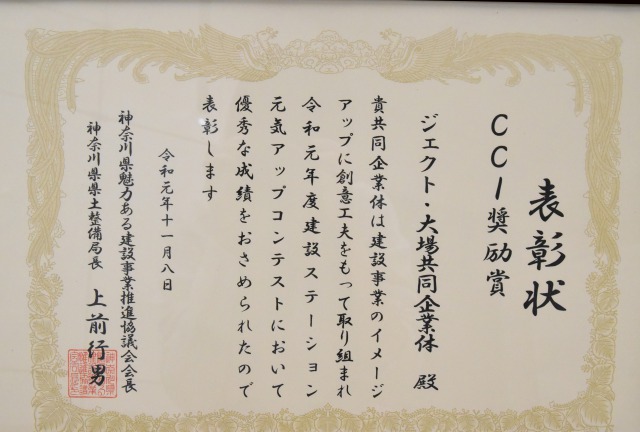 表彰状
CCI奨励賞
ジェクト・大場共同企業体 殿
貴共同企業体は建設事業のイメージ
アップに創意工夫をもって取り組まれ
令和元年度建設ステーション
元気アップコンテストにおいて
優秀な成績をおさめられたので
表彰します
令和元年十一月八日
神奈川県魅力ある建設事業推進協議会会長
神奈川県県土整備局長 上前行男